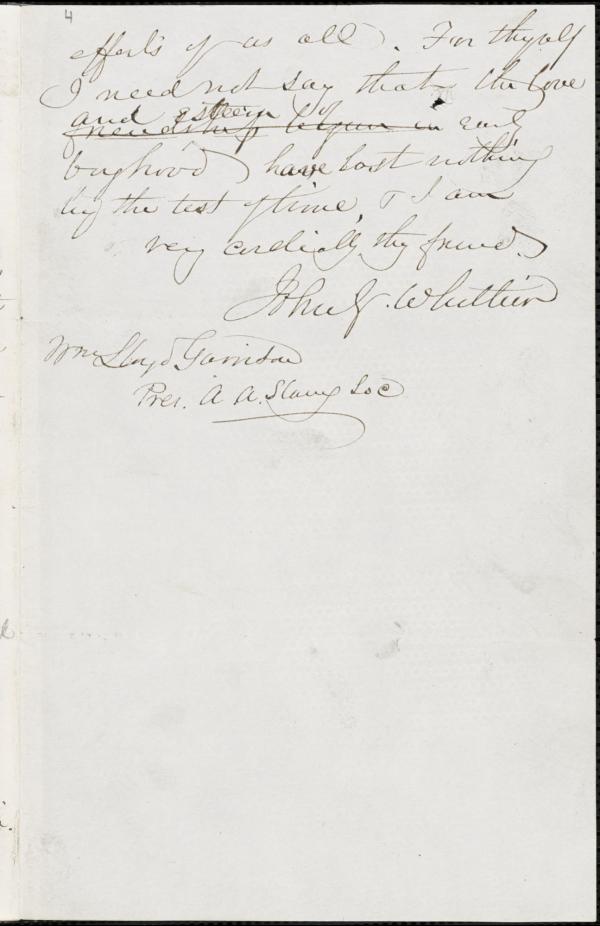 4
efforts of us all. For thyself
I need not say that the love
and esteem of
friendship begun in early
boyhood have lost nothing
by the test of time, & I am
very cordially thy friend
John G. Whittier
Wm Lloyd Garrison
Pres. A. A. Slavery Soc